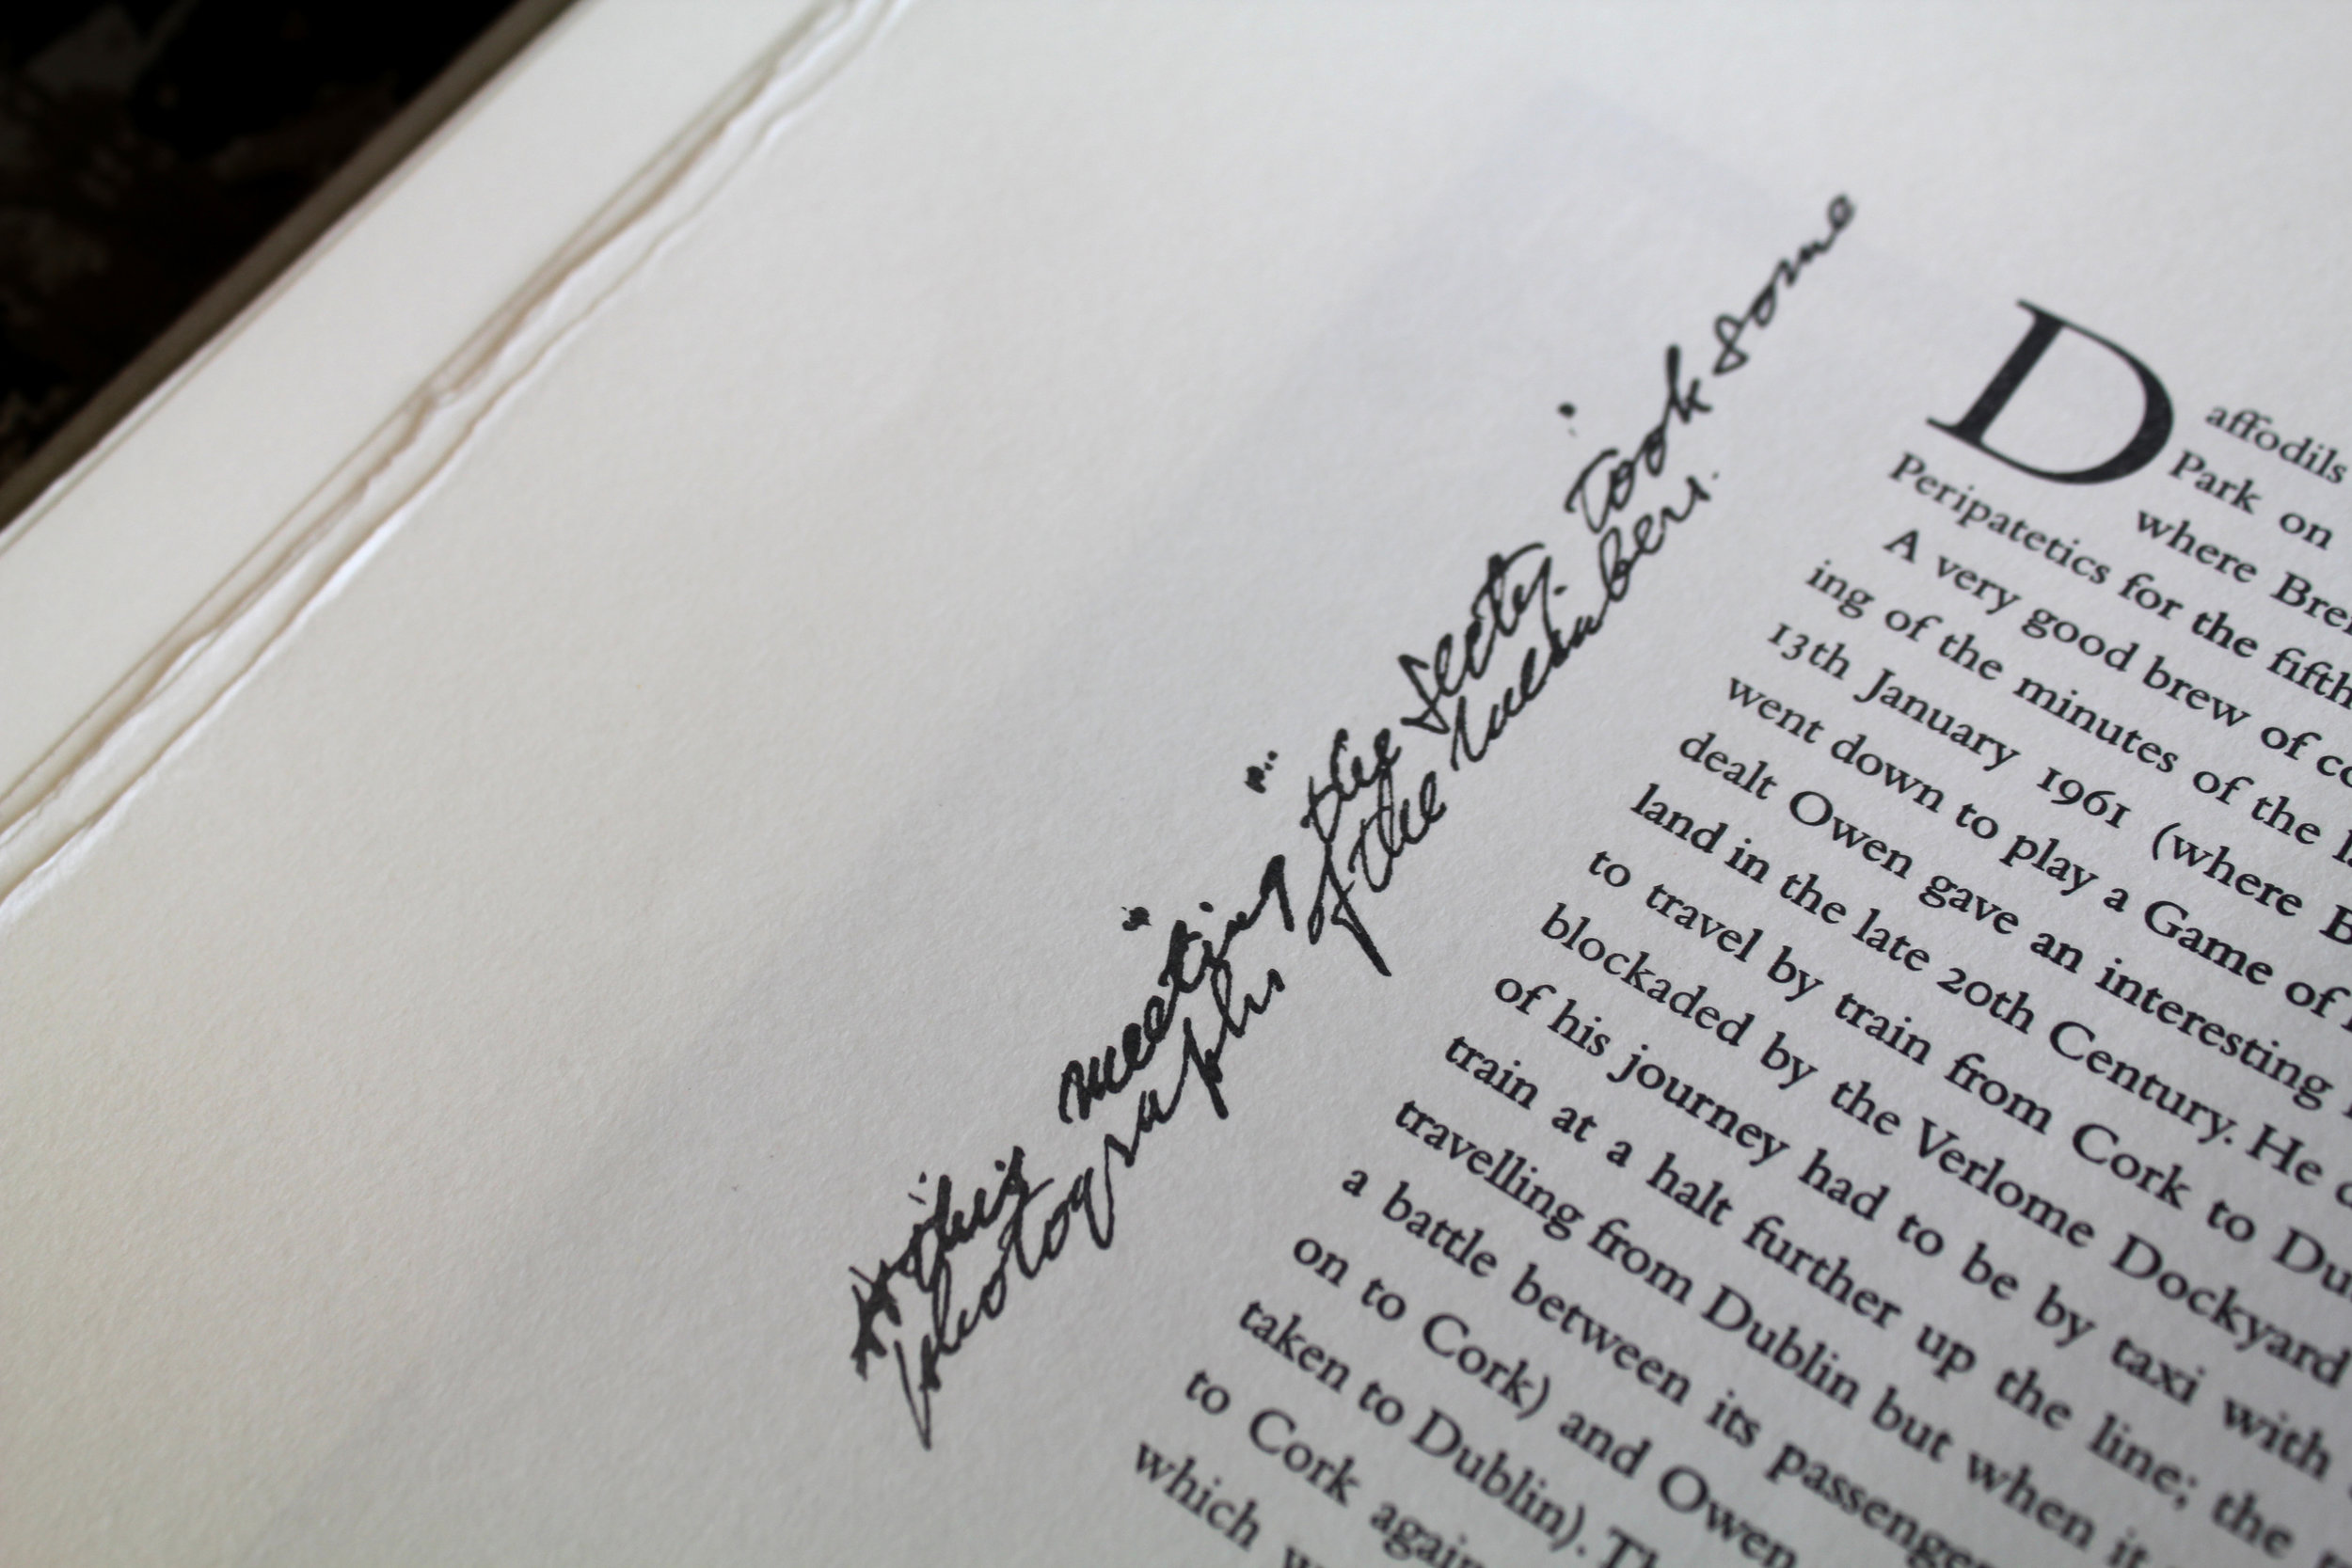 At this meeting the Secty. took some
photographs of the members.
Daffodils
Park on
where Bre
Peripatetics for the fifth
A very good brew of co
ing of the minutes of the l
13th January 1961 (where B
went down to play a Game of
dealt Owen gave an interesting
land in the late 20th Century. He
to travel by train from Cork to Du
blockaded by the Verlome Dockyard
of his journey had to be by taxi with
train at a halt further up the line; the
travelling from Dublin but when it
a battle between its passenge
on to Cork) and Owen
taken to Dublin). Th
to Cork again
which w